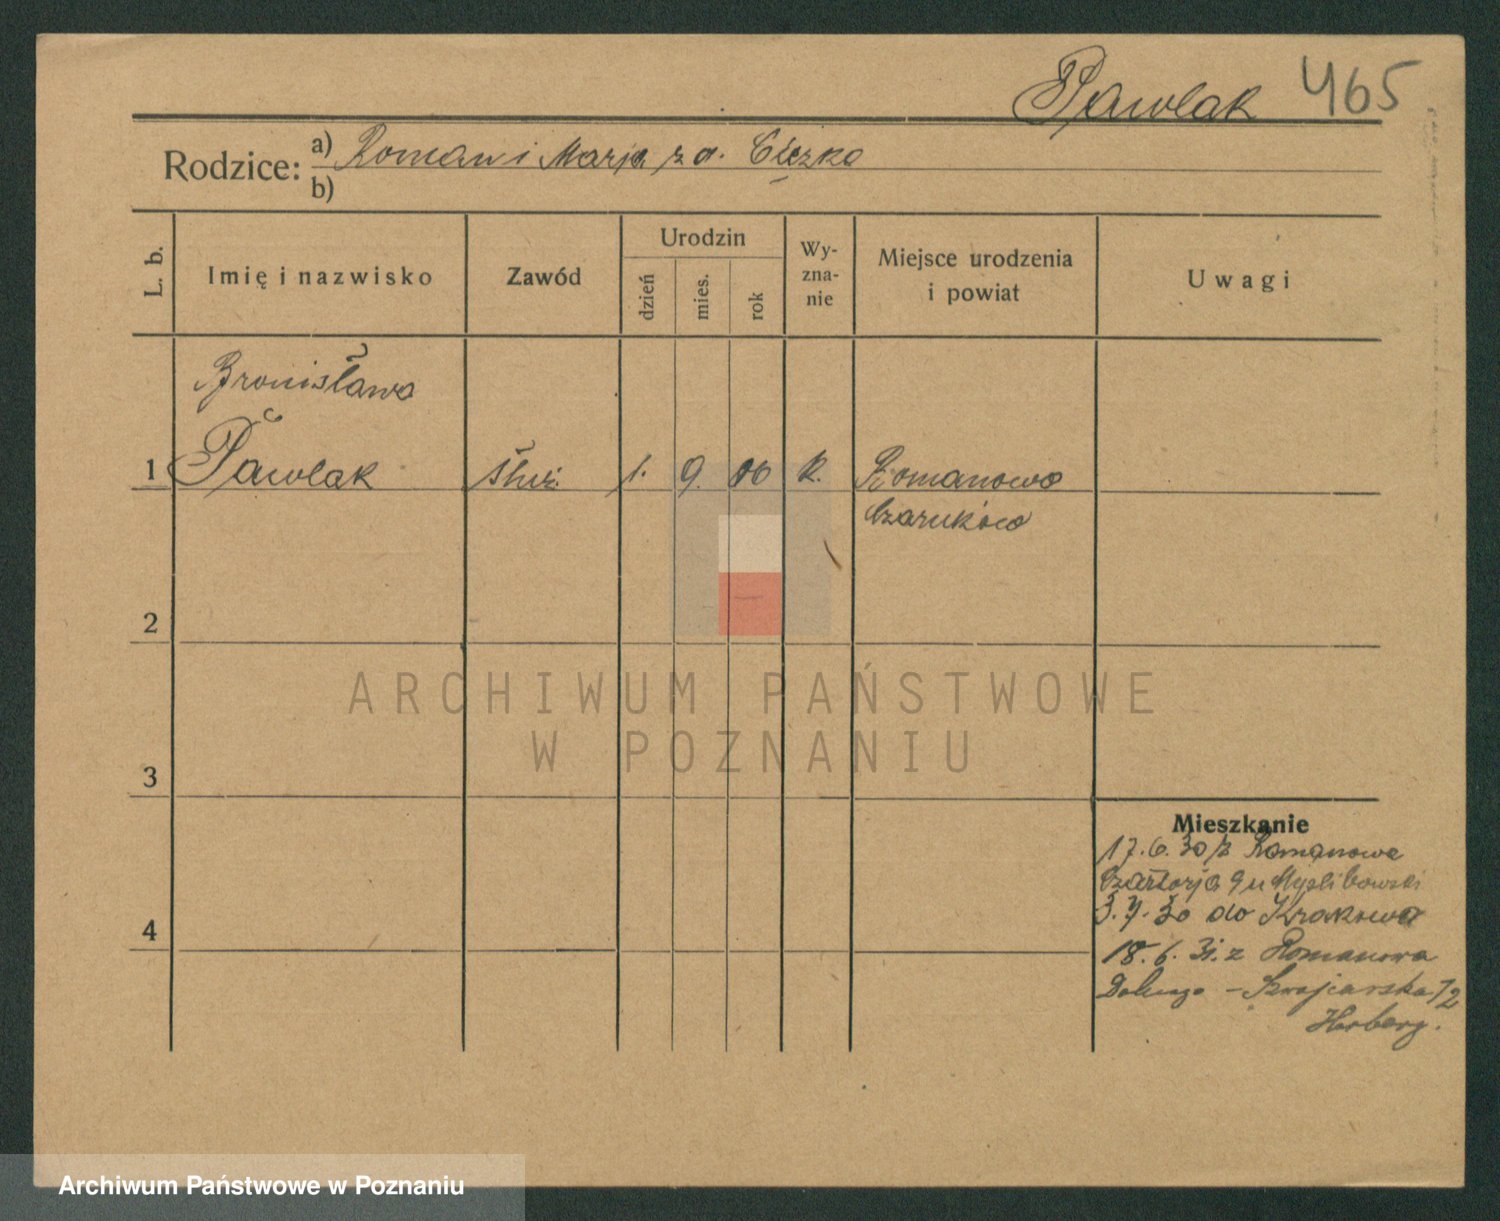 Pawlak 465
Rodzice: a) Roman i Marja z d.
b)
L. b.
Imię i nazwisko
Zawód
Urodzin
dzień
mies.
rok
Wy-
zna-
nie
Miejsce urodzenia
i powiat
Uwagi
Bronisława
1 Pawlak służ. 1. 9. 06 k. Romanowo
Czarnków
2
3
4
ARCHIWUM PAŃSTWOWE
W POZNANIU
Mieszkanie
17.6.30 z Romanowa
Czartorja 9 u Myślibowski
3.7.30 do Krakowa
18.6.31. z Romanowa
Dolnego - Szwajcarska 12
Herberg.
Archiwum Państwowe w Poznaniu